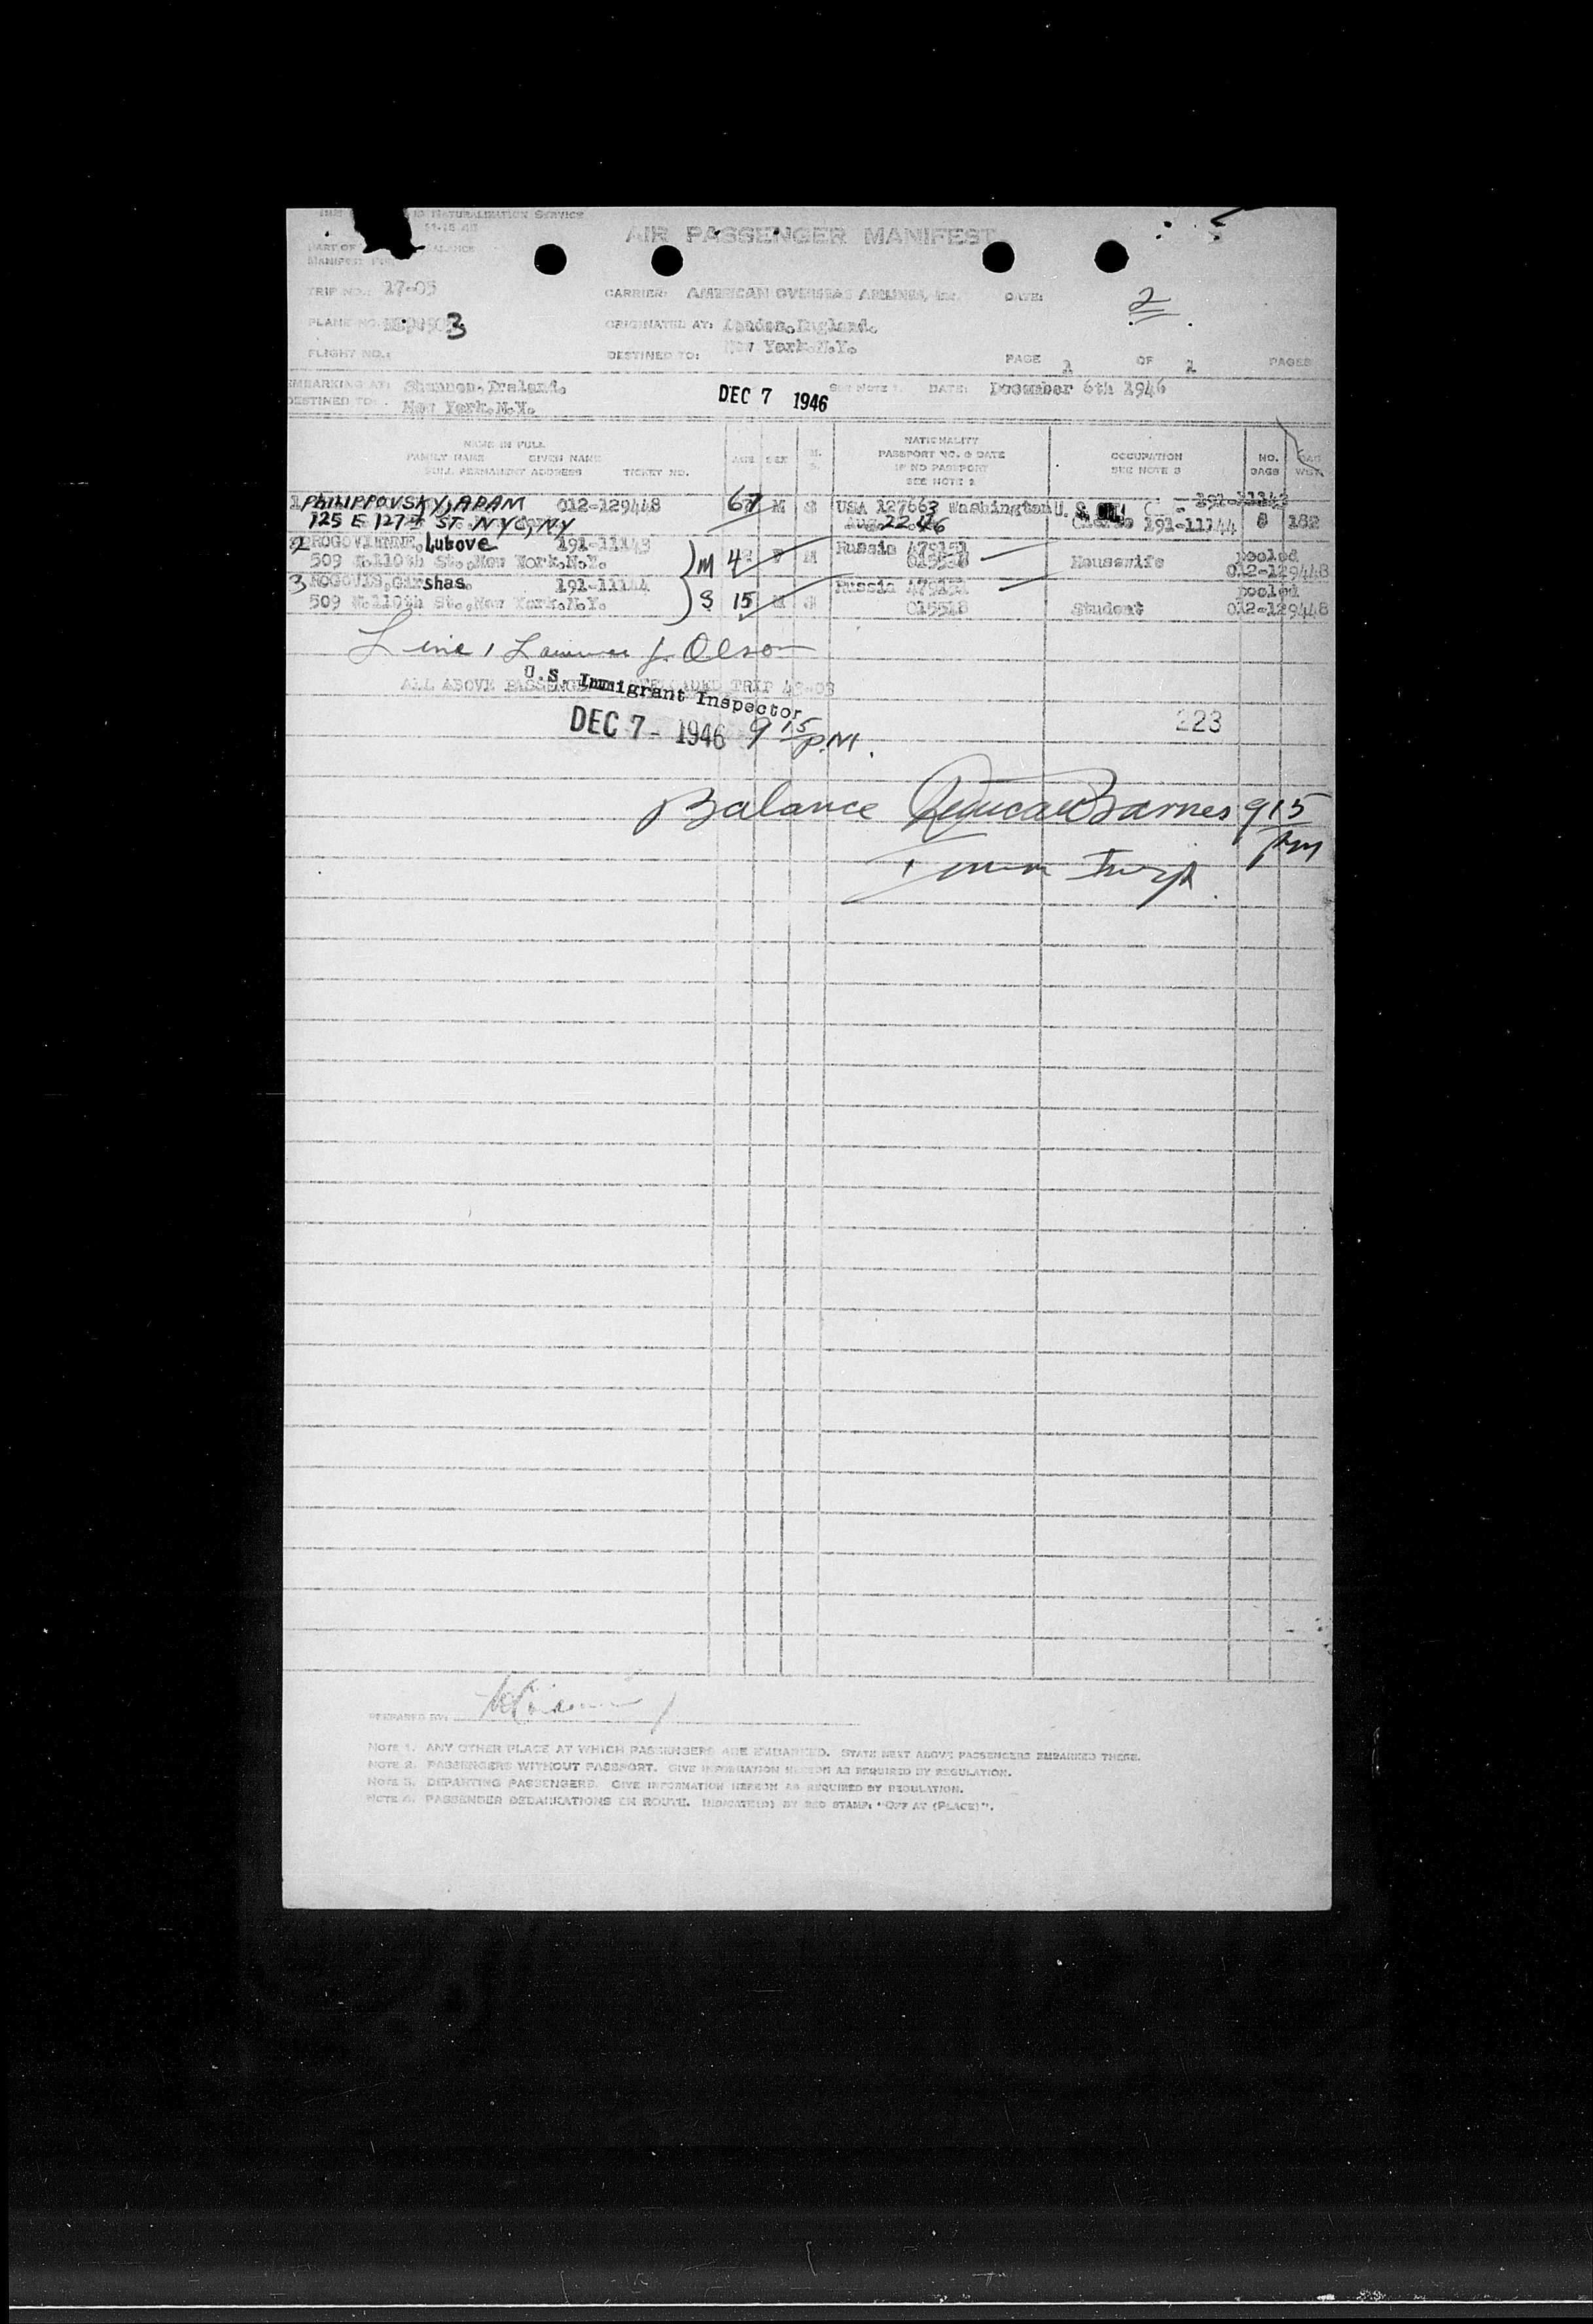 NATURALIZATION SERVICE
AIR PASSENGER MANIFEST
PART OF
TRIP NO.: 17-05 CARRIER: AMERICAN OVERSEAS AIRLINES, INC. DATE: 2
PLANE NO. 3 ORIGINATED AT: London, England.
FLIGHT NO.: DESTINED TO: New York, N.Y. PAGE 1 OF 1 PAGES
EMBARKING AT: Shannon, Ireland. SEE NOTE 1. DATE: December 6th 1946
DESTINED TO: New York, N.Y. DEC 7 1946
NAME IN FULL
FAMILY NAME GIVEN NAME
FULL PERMANENT ADDRESS TICKET NO.
AGE SEX M. S.
NATIONALITY
PASSPORT NO. & DATE
IF NO PASSPORT
SEE NOTE 2
OCCUPATION
SEE NOTE 3
NO. BAGS
BAG WGT.
1 PHILIPPOVSKY, ADAM 012-129448 67 M S USA 127663 Washington U. S. 191-11143
125 E 127th ST. NYC, NY Aug. 22 46 191-11144 8 182
2 ROGOVIENNE, Lubove 191-11143 M 4 F M Russia 479151 Housewife pooled
509 W.110th St., New York, N.Y. 015518 012-129448
3 ROGOVIS, Girshas. 191-11144 S 15 M S Russia 479151 Student pooled
509 W.110th St., New York, N.Y. 015518 012-129448
Line 1 Olson
ALL ABOVE TRIP 49-03
U.S. Immigrant Inspector
DEC 7 - 1946 9 15 P.M.
223
Balance Barnes 9 15 pm
Immn Insp.
PREPARED BY:
NOTE 1. ANY OTHER PLACE AT WHICH PASSENGERS ARE EMBARKED. STATE NEXT ABOVE PASSENGERS EMBARKED THERE.
NOTE 2. PASSENGERS WITHOUT PASSPORT. GIVE INFORMATION HEREON AS REQUIRED BY REGULATION.
NOTE 3. DEPARTING PASSENGERS. GIVE INFORMATION HEREON AS REQUIRED BY REGULATION.
NOTE 4. PASSENGER DEBARKATIONS EN ROUTE. INDICATE(D) BY RED STAMP: "OFF AT (PLACE)".